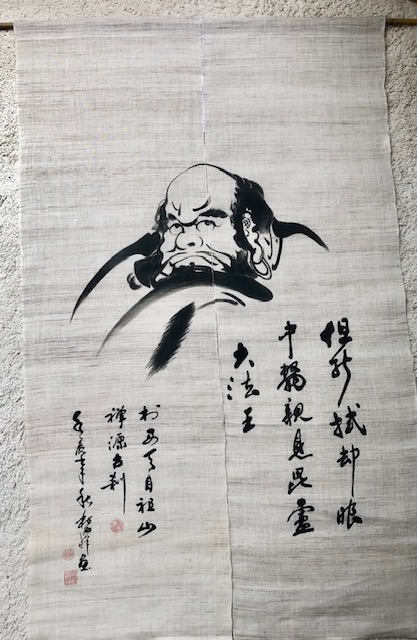 但能拭却眼
中翳親見毘
大法王
於西天目祖山
禅源古刹
壬辰年秋